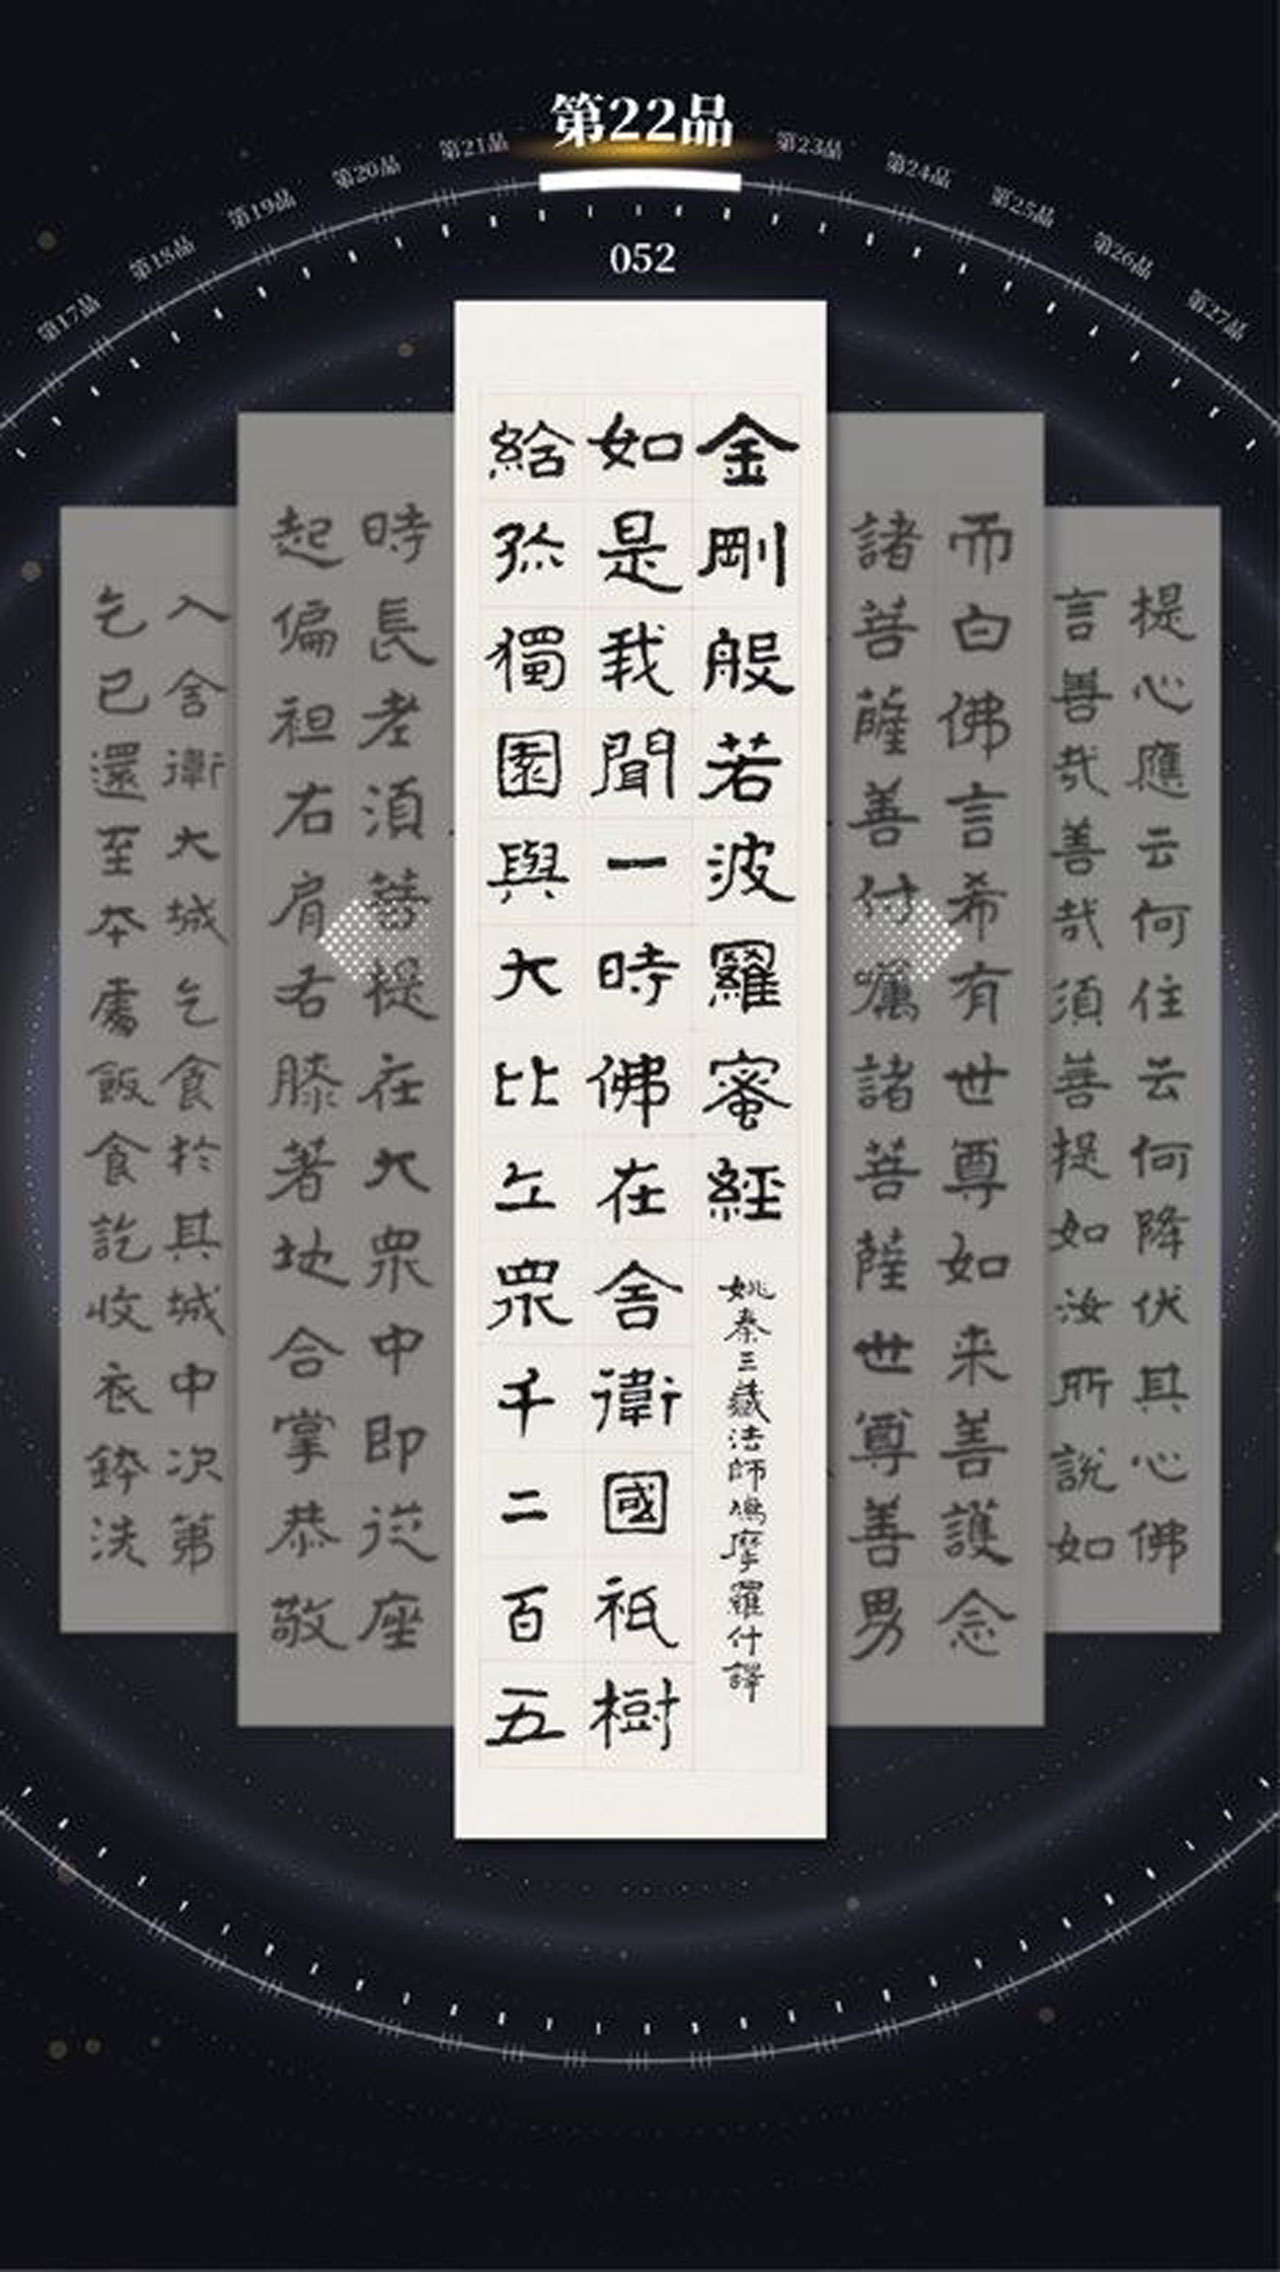 第22品
第17品
第18品
第19品
第20品
第21品
第23品
第24品
第25品
第26品
第27品
052
提心應云何住云何降伏其心佛
言善哉善哉須菩提如汝所說如
而白佛言希有世尊如来善護念
諸菩薩善付囑諸菩薩世尊善男
金剛般若波羅蜜經
姚秦三藏法師鳩摩羅什譯
如是我聞一時佛在舍衛國祇樹
給孤獨園與大比丘眾千二百五
時長老須菩提在大眾中即從座
起偏袒右肩右膝著地合掌恭敬
入舍衛大城乞食於其城中次第
乞已還至本處飯食訖收衣鉢洗